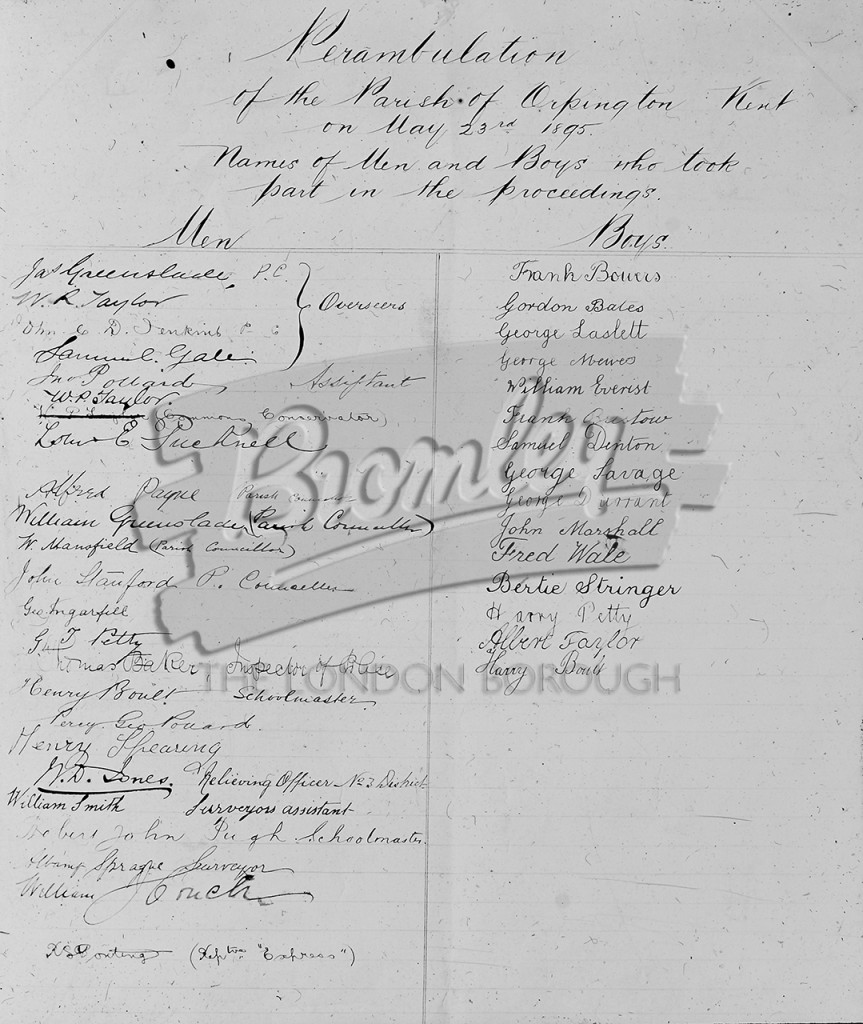 Perambulation
of the Parish of Orpington Kent
on May 23rd 1895.
Names of Men and Boys who took
part in the proceedings.
Men
Jas Greenslade, P.C.
W. R. Taylor
John C D. Jenkins P C
Samuel Gale
Overseers
Jno Pollard Assistant
W. P. Taylor
(Commons Conservator)
Louis E Pucknell
Alfred Payne Parish Councillor
William Greenslade (Parish Councillor)
W. Mansfield (Parish Councillor)
John Stanford P. Councillor
Geo Ingarfill
G. T Petty
Thomas Baker, Inspector of Police
Henry Boult Schoolmaster
Percy Geo Pollard.
Henry Spearing
W. D. Jones. Relieving Officer No 3 District
William Smith Surveyors assistant
Robert John Pugh Schoolmaster.
Sprague Surveyor
William Couch
Ponting "Express")
Boys.
Frank Bowers
Gordon Bates
George Laslett
George Mewes
William Everist
Frank Bristow
Samuel Dinton
George Savage
George Durrant
John Marshall
Fred Wale
Bertie Stringer
Harry Petty
Albert Taylor
Harry Boult
Bromley
THE LONDON BOROUGH